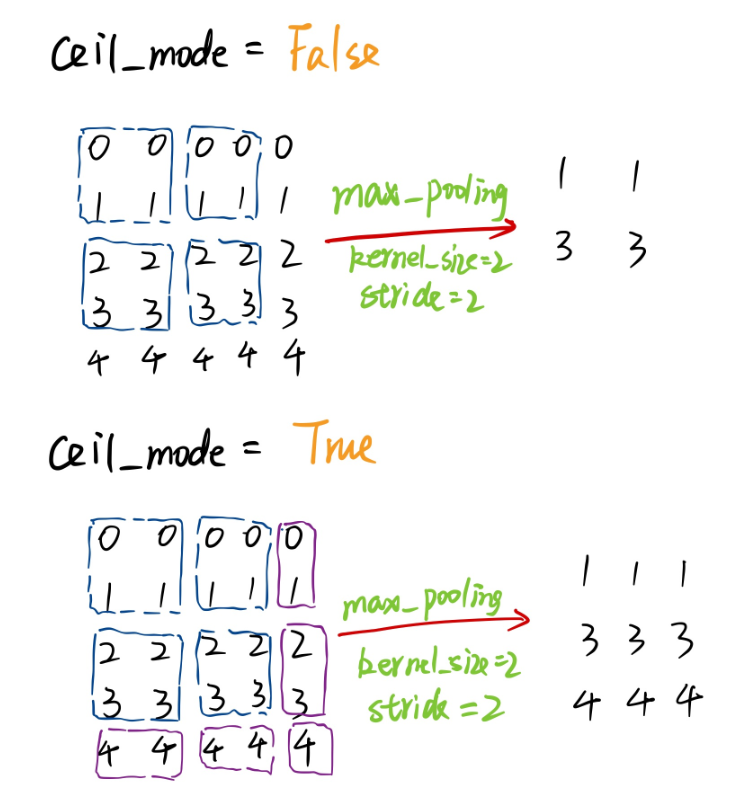 ceil_mode = False
0 0 0 0 0
1 1 1 1 1
2 2 2 2 2
3 3 3 3 3
4 4 4 4 4
max_pooling
kernel_size=2
stride=2
1 1
3 3
ceil_mode = True
0 0 0 0 0
1 1 1 1 1
2 2 2 2 2
3 3 3 3 3
4 4 4 4 4
max_pooling
kernel_size=2
stride=2
1 1 1
3 3 3
4 4 4